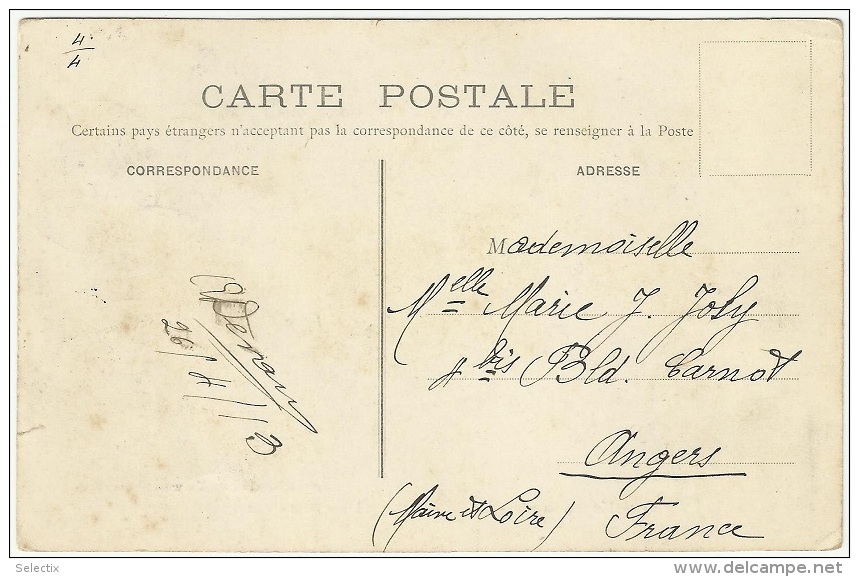 4
4
CARTE POSTALE
Certains pays étrangers n'acceptant pas la correspondance de ce côté, se renseigner à la Poste
CORRESPONDANCE
ADRESSE
Mademoiselle
Melle Marie J. Joly
4 bis Bld. Carnot
Angers
(Maine et Loire)
France
26/4/13
Selectix
www.delcampe.net